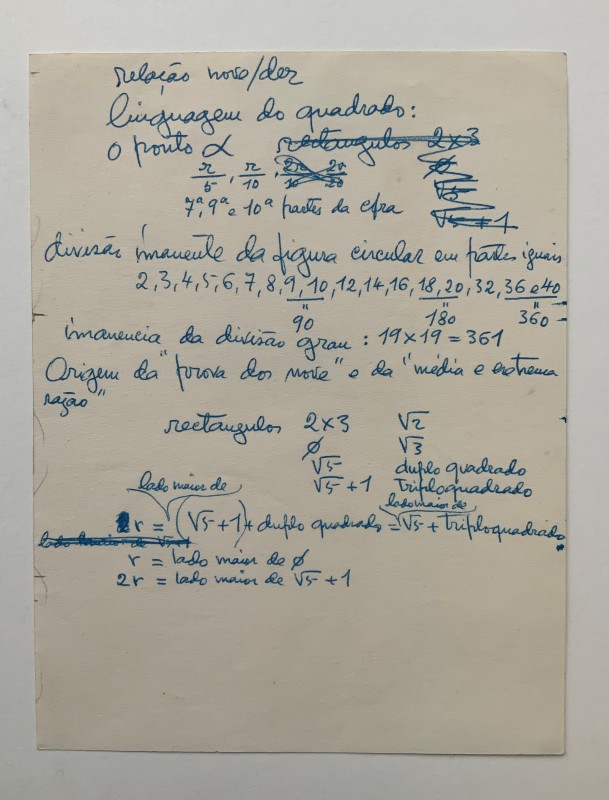 relação nove/dez
linguagem do quadrado:
o ponto α rectangulos 2×3
r/5, r/10, 2r/10 2r/20 ϕ
√5
7ª, 9ª e 10ª partes da cfra √5+1
divisão imanente da figura circular em partes iguais
2,3,4,5,6,7,8,9,10,12,14,16,18,20,32,36 e 40
" " "
90 180 360
imanencia da divisão grau: 19×19=361
Origem da "prova dos nove" e da "média e extrema
razão"
rectangulos 2×3 √2
ϕ √3
√5 duplo quadrado
√5+1 triploquadrado
lado maior de lado maior de
2r = (√5+1)+duplo quadrado = √5+triploquadrado
lado maior de √5+1
r = lado maior de ϕ
2r = lado maior de √5+1